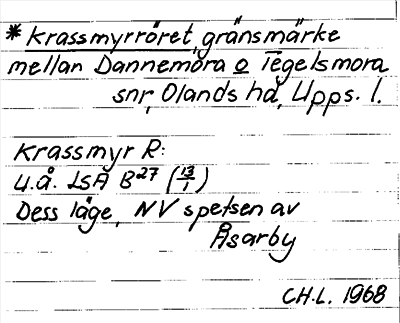 * Krassmyrröret, gränsmärke
mellan Dannemora o Tegelsmora
snr, Olands hd, Upps. l.
Krassmyr R:
u.å. LSA B27 (13/1)
Dess läge, NV spetsen av
Åsarby
CH.L. 1968